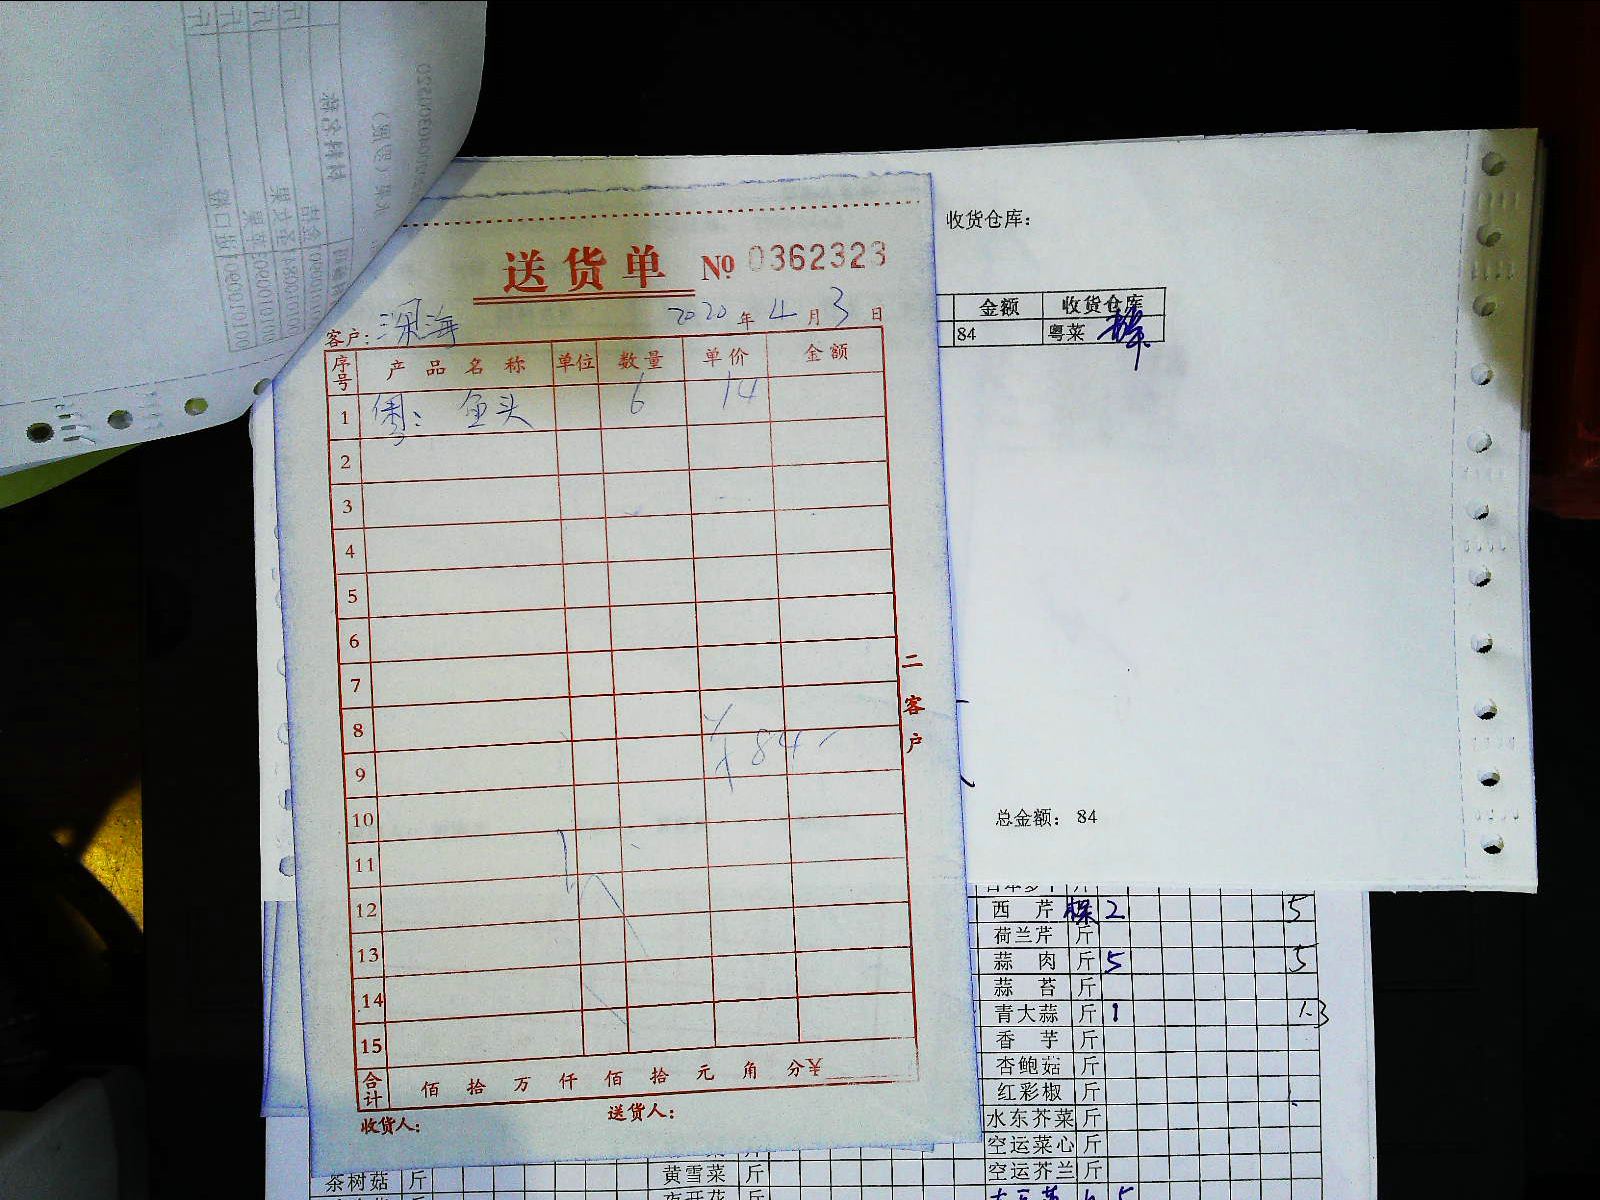 送货单 № 0362323
客户: 深海 2020 年 4 月 3 日
序号 产品名称 单位 数量 单价 金额
1 粤: 鱼头 6 14
2
3
4
5
6
7
8
9
10
11
12
13
14
15
¥84
合计 佰 拾 万 仟 佰 拾 元 角 分 ¥
收货人: 送货人:
二 客户
收货仓库:
金额 收货仓库
84 粤菜
总金额: 84
西芹 2 5
荷兰芹 斤
蒜肉 斤 5 5
蒜苔 斤
青大蒜 斤 1 1.3
香芋 斤
杏鲍菇 斤
红彩椒 斤
水东芥菜 斤
空运菜心 斤
空运芥兰 斤
茶树菇 斤
黄雪菜 斤